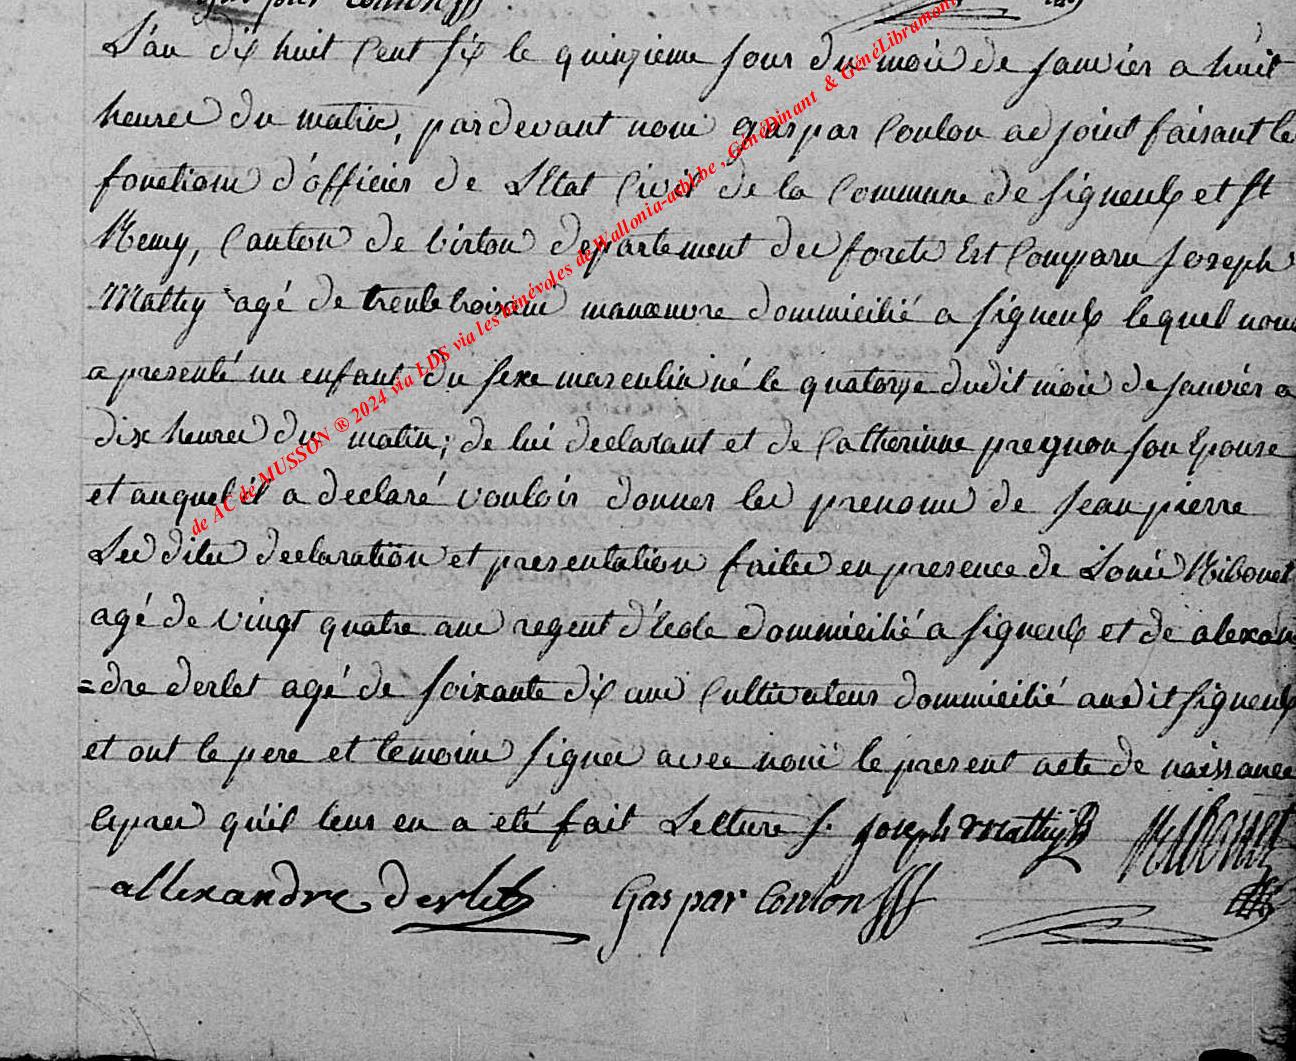 Gaspar Coulon
L'an dix huit Cent six le quinzieme jour du mois de janvier a huit
heures du matin, pardevant nous gaspar Coulon adjoint faisant les
fonctions d'officier de L'Etat Civil de la Commune de signeulx et st
Remy, Canton de virton departement des forets Est Comparu joseph
Mathy agé de trente trois ans manoeuvre dommicilié a signeulx lequel nous
a presenté un enfant du sexe masculin né le quatorze dudit mois de janvier a
dix heures du matin; de lui declarant et de Catherinne pregnon son Epouse
et auquel il a declaré vouloir donner les prenoms de jean pierre
Les dites declaration et presentation faites en presence de Louis Ribonet
agé de vingt quatre ans regent d'Ecole dommicilié a signeulx et de alexan
=dre derlet agé de soixante dix ans Cultivateur dommicilié audit signeulx
et ont le pere et temoins signes avec nous le present acte de naissance
apres qu'il leur en a eté fait Lecture s. joseph mathy Ribonet
allexandre derlet Gaspar Coulon
de AC de MUSSON ® 2024 via LDS via les bénévoles de Wallonia-asbl.be , GénéDinant & GénéLibramont